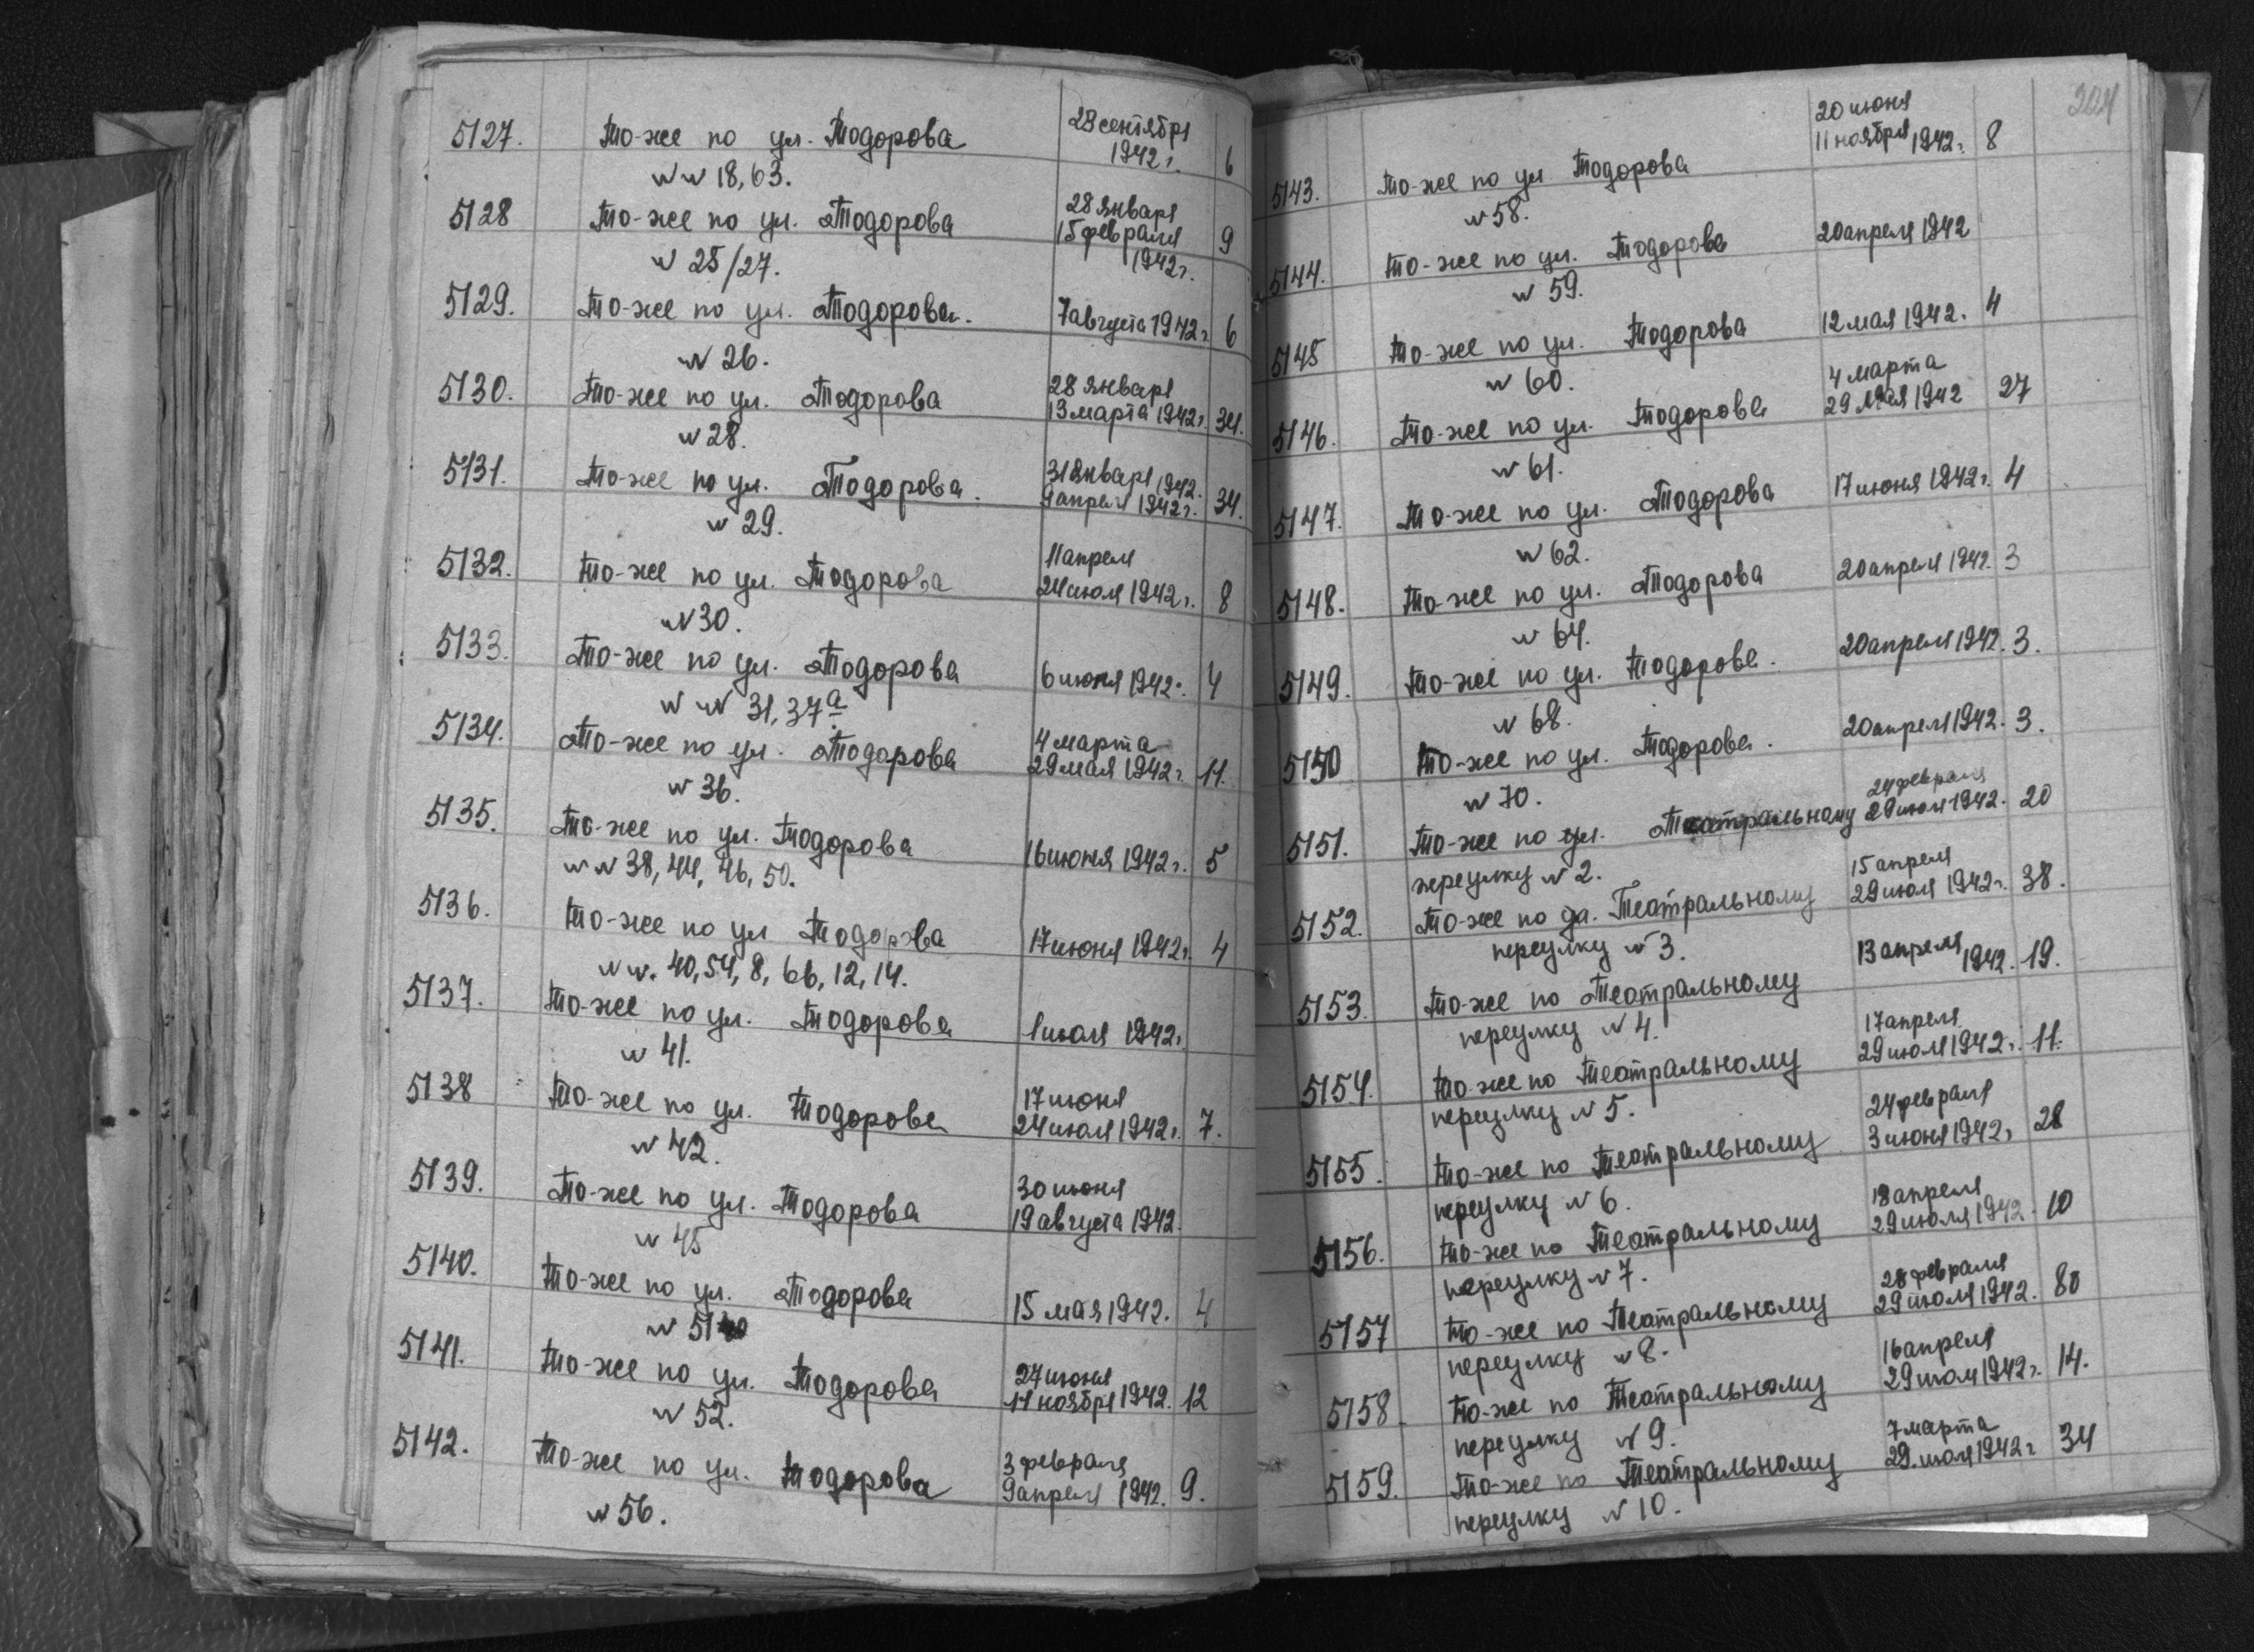 5127. То-же по ул. Тодорова 28 сентября
1942 г. 6
N N 18, 63.
5128 То-же по ул. Тодорова 28 января
15 февраля 9
1942 г.
N 25/27.
5129. То-же по ул. Тодорова. 7 августа 1942 г. 6
N 26.
5130. То-же по ул. Тодорова 28 января
13 марта 1942 г. 34.
N 28.
5131. То-же по ул. Тодорова. 31 января 1942.
9 апреля 1942 г. 34.
N 29.
5132. То-же по ул. Тодорова 11 апреля
24 июля 1942 г. 8
N 30.
5133. То-же по ул. Тодорова 6 июня 1942 г. 4
N N 31, 37а.
5134. То-же по ул. Тодорова 4 марта
29 мая 1942 г. 11.
N 36.
5135. То-же по ул. Тодорова 16 июня 1942 г. 5
N N 38, 44, 46, 50.
5136. То-же по ул Тодорова 17 июня 1942 г. 4
N N. 40, 54, 8, 66, 12, 14.
5137. То-же по ул. Тодорова 1 июля 1942 г.
N 41.
5138 То-же по ул. Тодорова 17 июня
24 июля 1942 г. 7.
N 42.
5139. То-же по ул. Тодорова 30 июня
19 августа 1942.
N 45
5140. То-же по ул. Тодорова 15 мая 1942. 4
N 51
5141. То-же по ул. Тодорова 27 июня
11 ноября 1942. 12
N 52.
5142. То-же по ул. Тодорова 3 февраля
9 апреля 1942. 9.
N 56.
204
20 июня
11 ноября 1942 г. 8
5143. То-же по ул Тодорова
N 58.
5144. То-же по ул. Тодорова 20 апреля 1942
N 59.
5145 То-же по ул. Тодорова 12 мая 1942. 4
N 60.
5146. То-же по ул. Тодорова 4 марта
29 мая 1942 27
N 61.
5147. То-же по ул. Тодорова 17 июня 1942 г. 4
N 62.
5148. То-же по ул. Тодорова 20 апреля 1942. 3
N 64.
5149. То-же по ул. Тодорова. 20 апреля 1942. 3.
N 68.
5150 То-же по ул. Тодорова. 20 апреля 1942. 3.
N 70.
5151. То-же по ул. Театральному 24 февраля
29 июля 1942. 20
переулку N 2.
5152. То-же по ул. Театральному 15 апреля
29 июля 1942 г. 38.
переулку N 3.
5153. То-же по Театральному 13 апреля 1942. 19.
переулку N 4.
5154. То-же по Театральному 17 апреля
29 июля 1942 г. 11.
переулку N 5.
5155. То-же по Театральному 24 февраля
3 июня 1942 г. 28
переулку N 6.
5156. То-же по Театральному 18 апреля
29 июля 1942. 10
переулку N 7.
5157 То-же по Театральному 28 февраля
29 июля 1942. 80
переулку N 8.
5158. То-же по Театральному 16 апреля
29 июля 1942 г. 14.
переулку N 9.
5159. То-же по Театральному 7 марта
29. июля 1942 г. 34
переулку N 10.